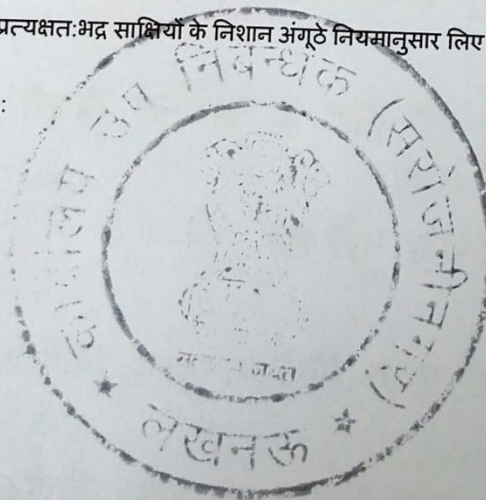 प्रत्यक्षत:भद्र साक्षियों के निशान अंगूठे नियमानुसार लिए
:
कार्यालय उप निबन्धक (सरोजनीनगर)
* लखनऊ *